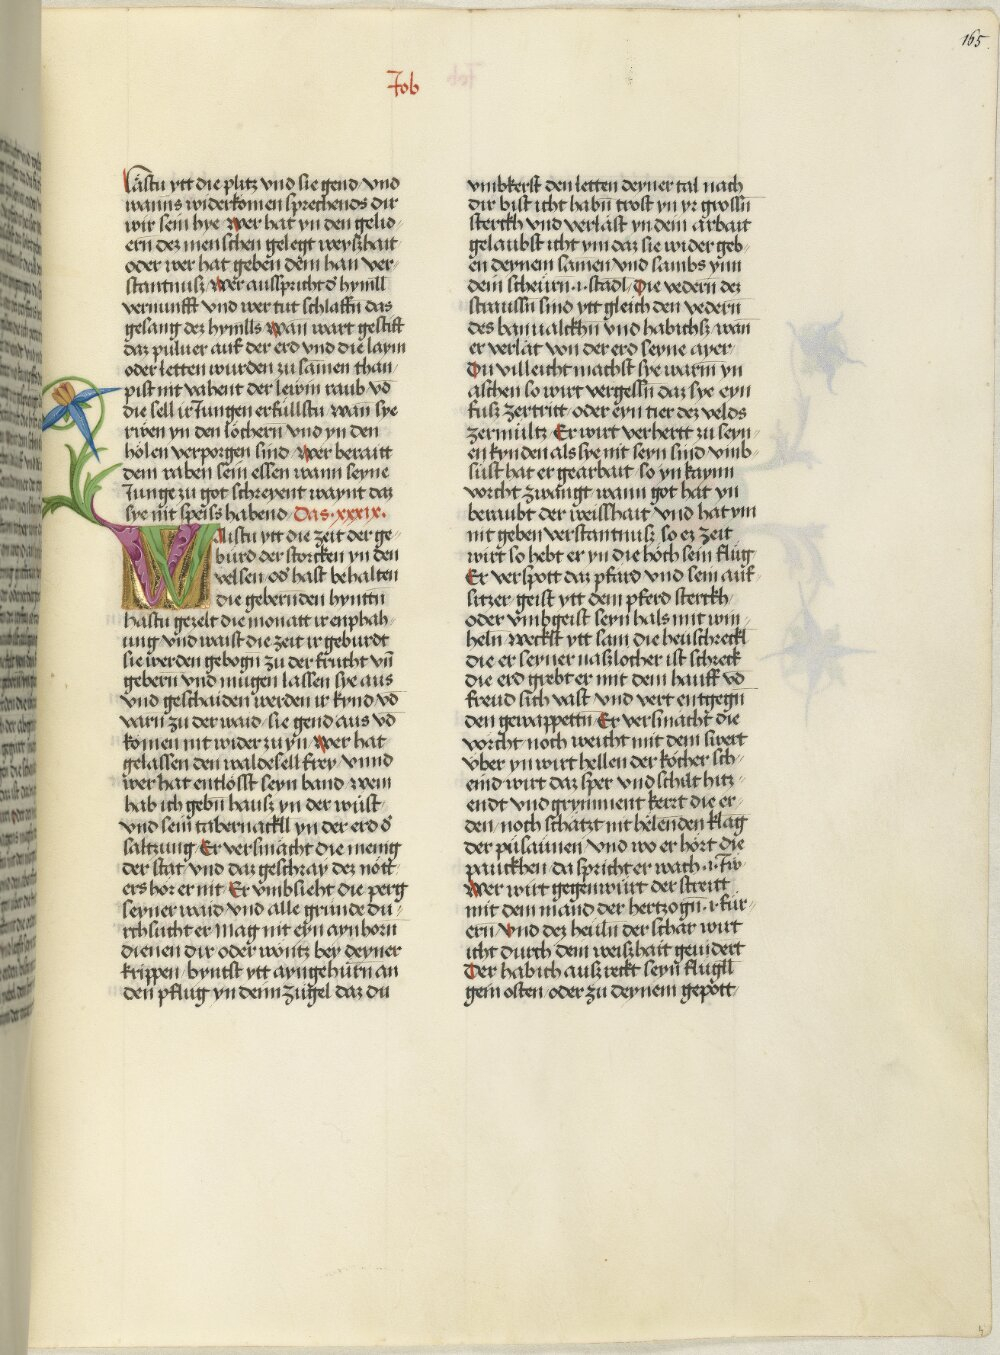 165
Job
Lästu ytt die plitz vnd sie gend vnd
wanns widerkomen sprechends dir
wir sein hye Wer hat yn den gelid-
ern dez menschen gelegt weyszhait
oder wer hat geben dem han ver-
stantnusz Wer ausspricht d hymll
vernunfft vnd wer tut schlaffn das
gesang dez hymlls Wan wart gestift
daz puluer auf der erd vnd die laym
oder letten wurden zu samen than
pist nit vahent der lewin raub vnd
die sell ir Jungen erfüllstu wan sye
rwen yn den löchern vnd yn den
hölen verporgen sind Wer beraitt
dem raben sein essen wann seyne
Junge zu got schreyent waynt daz
sye nit speiss habend Das .xxxix.
Waistu ytt die zeit der ge-
burd der storcken yn den
velsen od hast behalten
die gebernden hynttn
hastu gezelt die monatt ir enphah-
ung vnd waist die zeit ir geburdt
sie werden gebogn zu der frucht vn
gebern vnd mügen lassen sye aus
vnd geschaiden werden ir kynd vnd
varn zu der waid sie gend aus vnd
komen nit wider zu yn Wer hat
gelassen den waldesell frey vnnd
wer hat entlösst seyn band wem
hab ich gebn hausz yn der wüst
vnd sein tabernackll yn der erd d
saltzung Er versmacht die menig
der stat vnd daz geschray dez nött
ers hör er nit Er vmbsieht die perg
seyner waid vnd alle gründe du-
rchsucht er Mag nit eyn aynhorn
dienen dir oder wonitz bey deyner
krippen byntst ytt ayngehürn an
den pflug yn denn zügel daz du
vmbkerst den letten deyner tal nach
dir bist icht habn trost yn yr grossn
sterckh vnd verläst yn dem arbait
gelaubst icht ym daz sie wider geb-
en deynem samen vnd sambs ynn
dein scheurn .i. stadl Die vedern dez
straussn sind ytt gleich den vedern
des banualckhn vnd habichsz wan
er verlat von der erd seyne ayer
Du villeicht machst sye warm yn
aschen so wirt vergessn daz sye eyn
fusz zertritt oder eyn tier dez velds
zermültz Er wirt verhertt zu seyn-
en kynden als sye nit seyn sind vmb-
süst hat er gearbait so yn kaynn
vorcht zwangt wann got hat yn
beraubt der weisshait vnd hat ym
nit geben verstantnusz so ez zeit
wirt so hebt er yn die höch sein flüg
Er verspott daz pfärd vnd sein auf-
sitzer geist ytt dem pferd sterckh
oder vmbgeist seyn hals mit win-
heln Weckst ytt sam die heuschreckl
die er seyner naszlöcher ist schreck
die erd grebt er mit dem hauff vnd
freud sich vast vnd vert entgegn
den gewappettn Er versmacht die
vorcht noch weicht mit dem swert
vber yn wirt hellen der köcher sch-
eind wirt daz sper vnd schilt hitz-
endt vnd grymment kerzt die er-
den noch schatzt nit hölenden klag
der pusaunen vnd wo er hört die
pauckhen da spricht er wach .i. Jw
Wer wirt gegenwürt der streitt
mit dem mand der hertzogn .i. für-
ern Vnd dez heuln der schar wirt
icht durch dem weiszhait geuidert
Der habich ausz reckt seyn flugll
gein osten oder zu deynem gepott